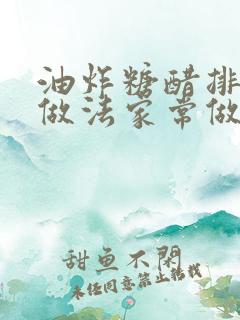 油炸糖醋排
做法家常做
甜鱼不闲
未经同意禁止转载